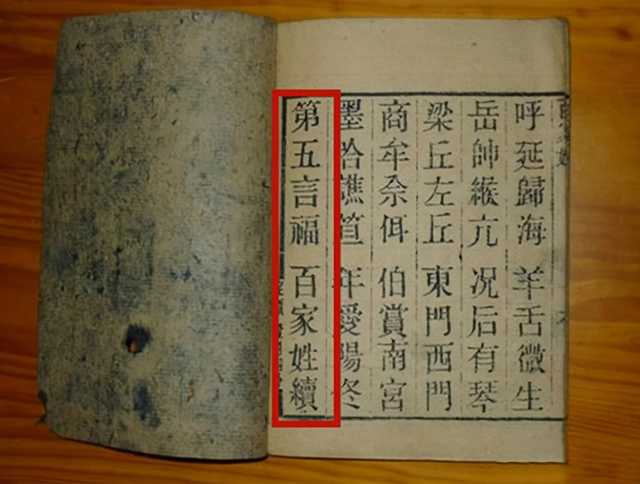 呼延歸海羊舌微生
岳帥緱亢况后有琴
梁丘左丘東門西門
商牟佘佴伯賞南宮
墨哈譙笪年愛陽佟
第五言福百家姓續